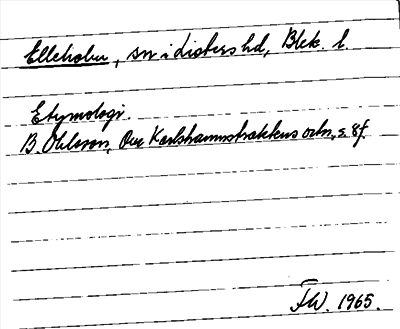 Elleholm, sn i Listers hd, Blek. l.
Etymologi.
B. Ohlsson, Om Karlshamnstraktens ortn, s. 8f.
FW. 1965.